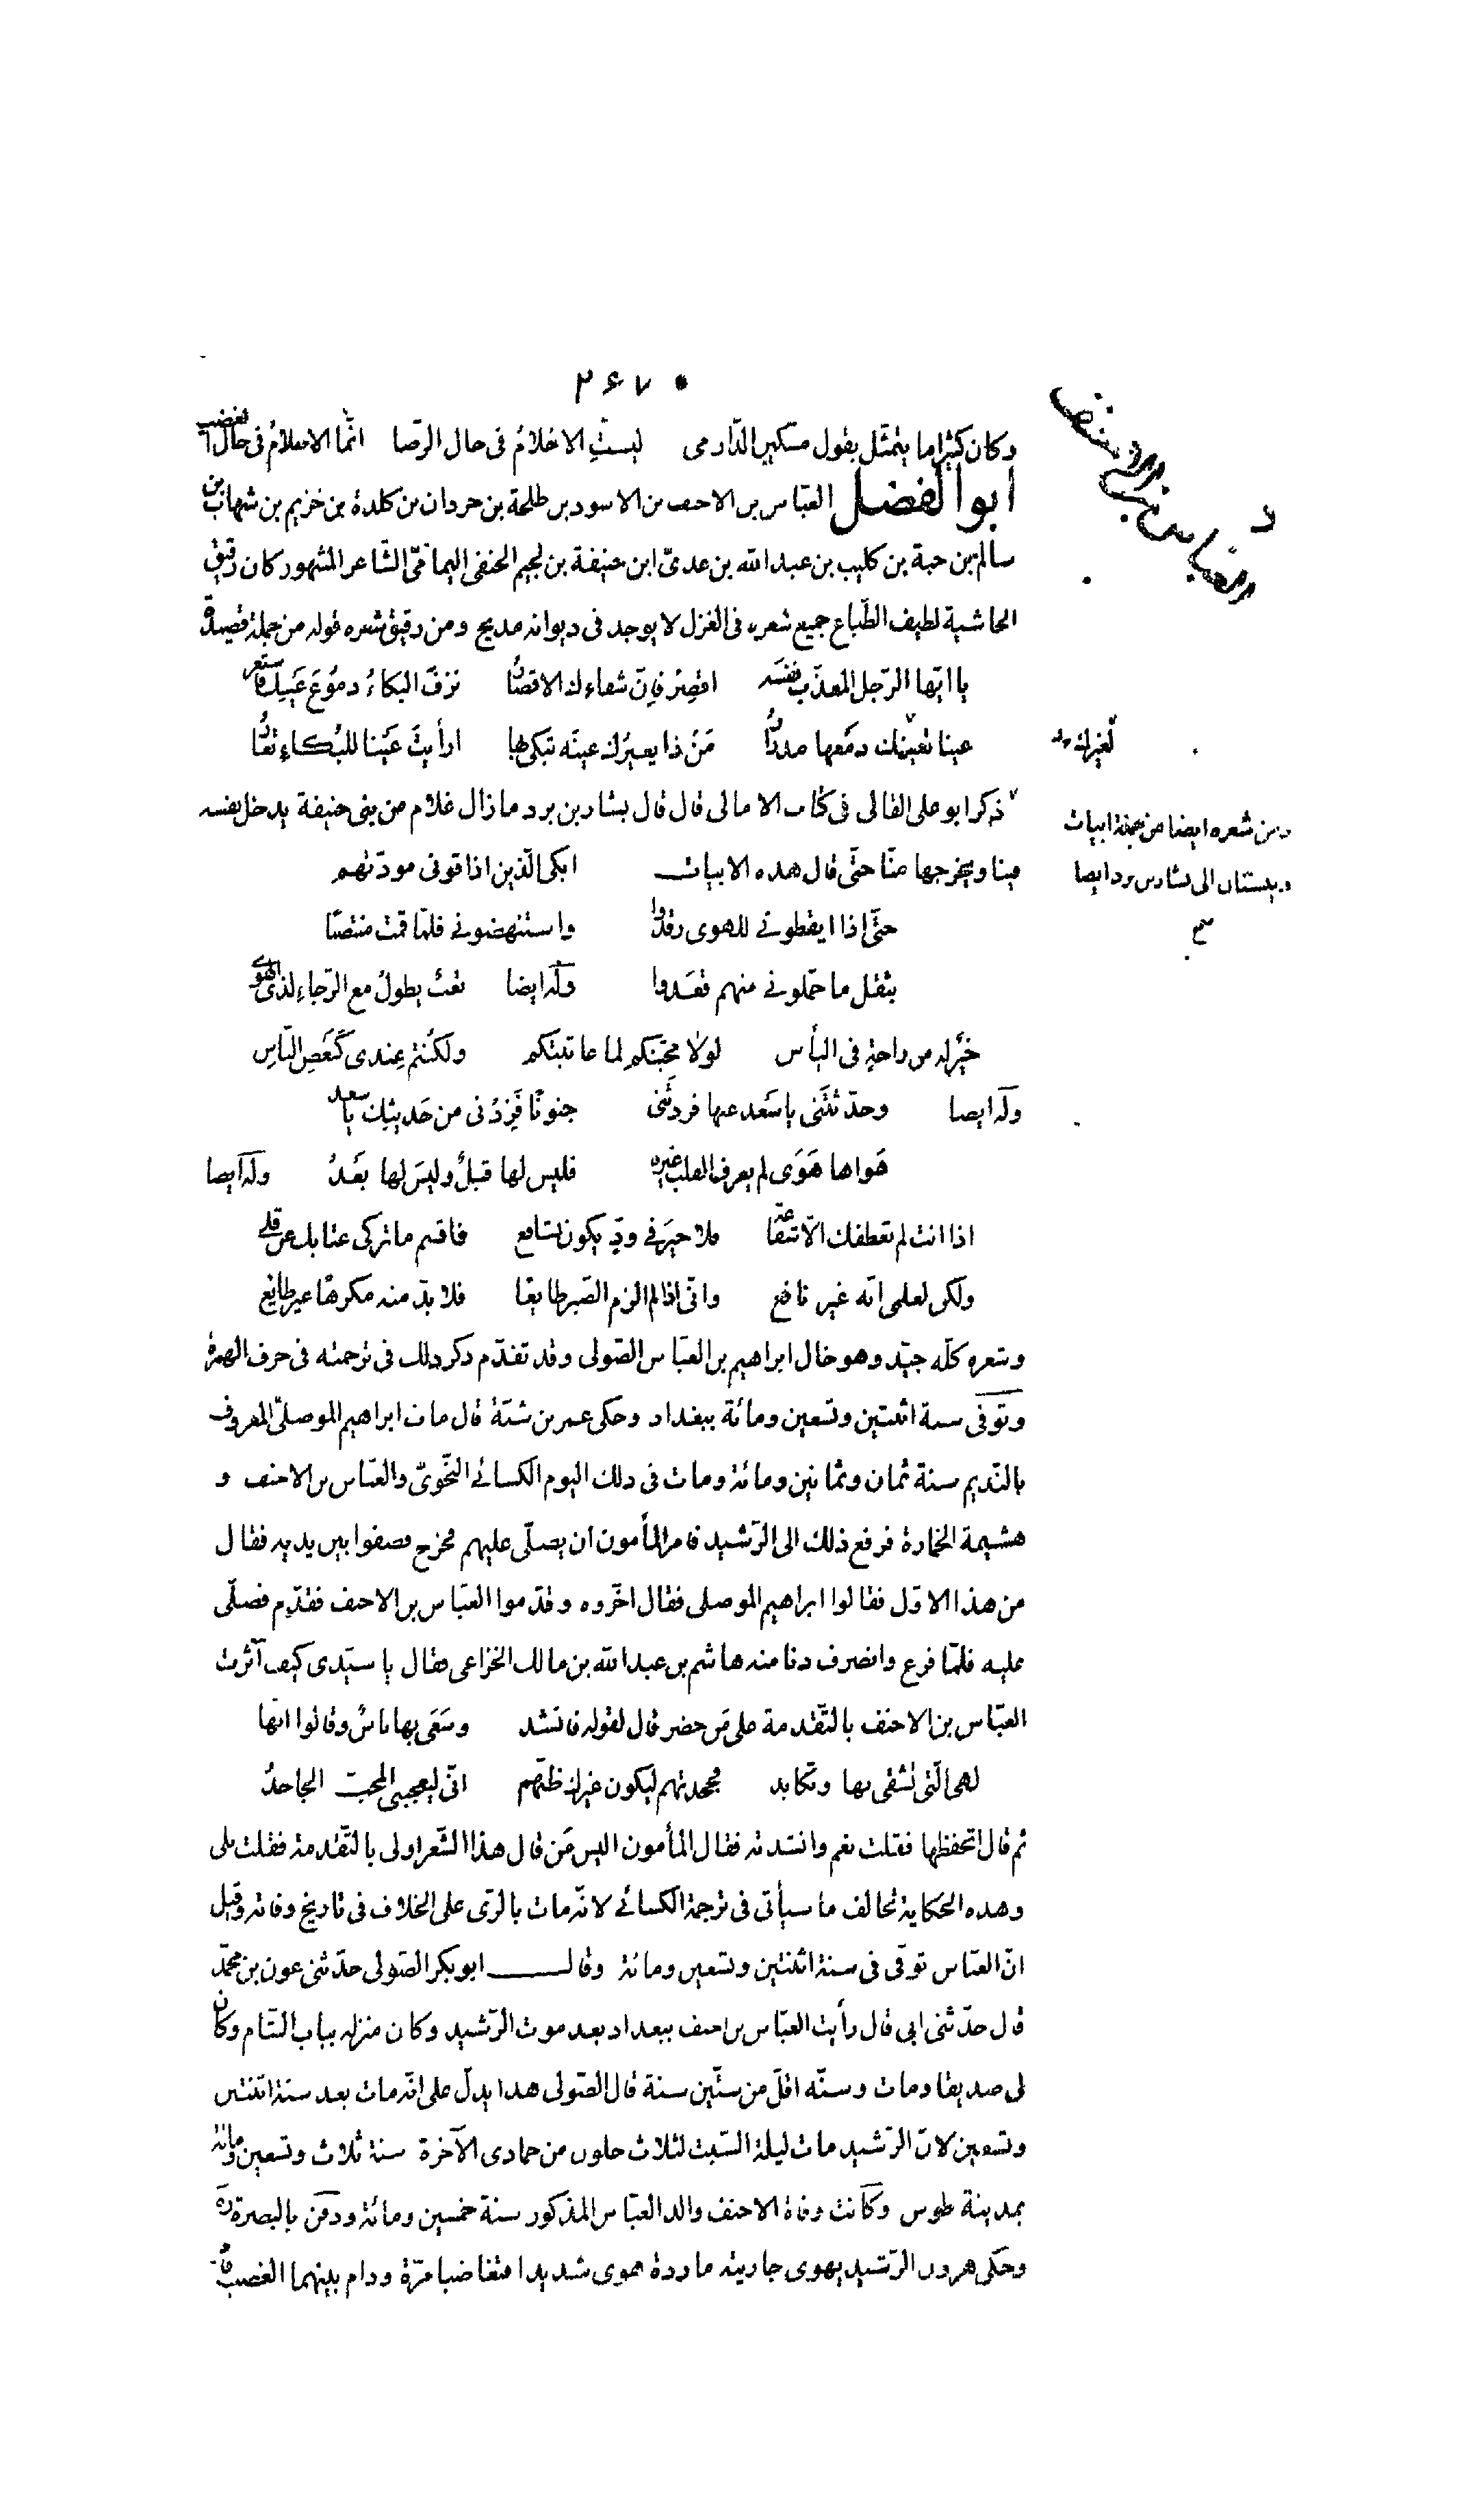 ۲۶۷
وكان كثيرا ما يتمثّل بقول مسكين الدّارمى ليستِ الاحلامُ فى حال الرّضا انّما الاحلامُ فى حال الغضب
أبو الفضل العبّاس بن الاحنف بن الاسود بن طلحة بن حردان بن كلدة بن خزيم بن شهاب بن
سالم بن حبة بن كليب بن عبد الله بن عدىّ ابن حنيفة بن لجيم الحنفى اليمامىّ الشّاعر المشهور كان رقيق
الحاشية لطيف الطّباع جميع شعره فى الغزل لا يوجد فى ديوانه مديح ومن رقيق شعره قوله من جملة قصيدة
يا ايّها الرّجل المعذّب نفسَه اقصِرْ فإنّ شفاءك الاقصارُ نزفَ البكاءُ دموعَ عَينِك فاستعر
عينا تعينك دمعها مدرارُ مَنْ ذا يعيرُك عينَه تبكى بها ارأيتَ عَينا للبكاءِ تعارُ
لغيرك
ذكر ابو على القالى فى كتاب الامالى قال قال بشار بن برد ما زال غلام من بنى حنيفة يدخل نفسه
فينا ويخرجها منّا حتّى قال هذه الابيات ابكى الّذين اذاقونى مودّتهم
حتّى إذا ايقظونى للهوى رقدوا واستنهضونى فلمّا قمت منتصبًا
بثقل ما حمّلونى منهم قعَدوا وله ايضا تعبٌ يطولُ مع الرّجاءِ لذى الهوى
خيرٌ له من راحةٍ فى اليأس لولا محبّتكم لما عاتبتكم ولكُنتم عِندى كبَعضِ النّاسِ
وله ايضا وحدّثتَنى يا سَعد عنها فزدتَنى جنونًا فَزِدْنى من حَديثِك يا سعد
هَواها هَوَى لم يعرف القلب غيره فليس لها قبلٌ وليسَ لها بَعدُ وله ايضا
اذا انت لم تعطفك الاّ شفاعة فلا خيرَ فى ودٍّ يكون بشافع فاقسم ما تركى عتابك عن قلى
ولكن لعلمى انّه غير نافع وانّى اذا لم الزم الصّبر طايعًا فلا بدّ منه مكرهًا غير طايع
وشعره كلّه جيّد وهو خال ابراهيم بن العبّاس الصّولى وقد تقدّم ذكر ذلك فى ترجمته فى حرف الهمزة
وتوفّى سنة اثنتين وتسعين ومائة ببغداد وحكى عمر بن شبّة قال مات ابراهيم الموصلىّ المعروف
بالنّديم سنة ثمان وثمانين ومائة ومات فى ذلك اليوم الكسائى النّحوىّ والعبّاس بن الاحنف و
هشيمة الخمارة فرفع ذلك الى الرّشيد فامر المأمون ان يصلّى عليهم فخرج فصفوا بين يديه فقال
من هذا الاوّل فقالوا ابراهيم الموصلى فقال اخّروه وقدّموا العبّاس بن الاحنف فقدّم فصلّى
عليه فلمّا فرغ وانصرف دنا منه هاشم بن عبد الله بن مالك الخزاعى فقال يا سيّدى كيف آثرت
العبّاس بن الاحنف بالتّقدمة على مَن حضر قال لقوله فانشد وسَعَى بها ناسٌ وقالوا انّها
لهى الّتى تشقى بها وتكابد فجحدتهم ليكون غيرك ظنّهم انّى ليعجبنى المحبّ الجاحدُ
ثم قال اتحفظها فقلت نعم وانشدته فقال المأمون اليس مَن قال هذا الشّعر اولى بالتّقدمة فقلت بلى
وهذه الحكاية تخالف ما سيأتى فى ترجمة الكسائى لانّه مات بالرّى على الخلاف فى تاريخ وفاته وقيل
انّ العبّاس توفّى فى سنة اثنتين وتسعين ومائة وقال ابو بكر الصّولى حدّثنى عون بن محمّد
قال حدّثنى ابى قال رأيت العبّاس بن احنف ببغداد بعد موت الرّشيد وكان منزله بباب الشّام وكان
لى صديقا ومات وسنّه اقلّ من ستّين سنة قال الصّولى هذا يدلّ على انّه مات بعد سنة اثنتين
وتسعين لانّ الرّشيد مات ليلة السّبت لثلاث خلون من جمادى الآخرة سنة ثلاث وتسعين ومائة
بمدينة طوس وكانت وفاة الاحنف والد العبّاس المذكور سنة خمسين ومائة ودفن بالبصرة ره
وحكى هرون الرّشيد يهوى جاريته ماردة هوى شديدا فتغاضبا مرّة ودام بينهما الغضب
العباس بن الاحنف
ومن شعره ايضا من جملة ابيات
وينسبان الى بشار بن برد ايضا
صح